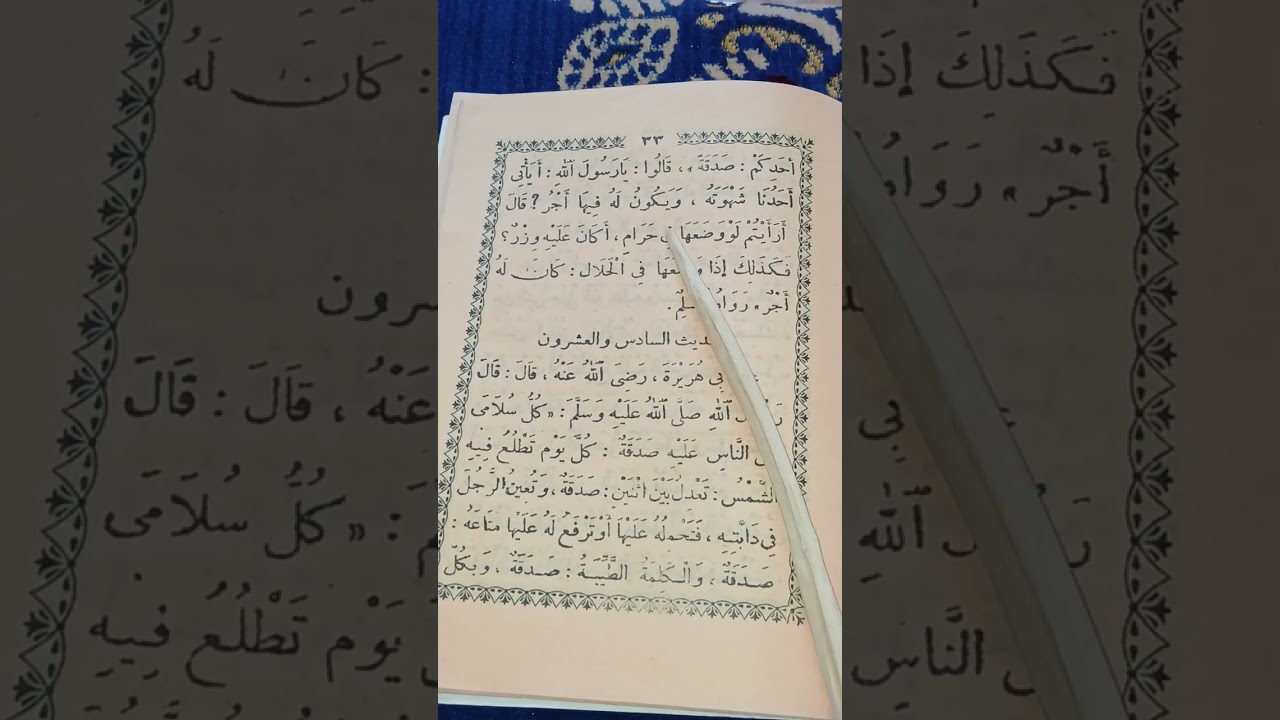 ٣٣
أَحَدِكُمْ : صَدَقَةٌ » ، قَالُوا : يَارَسُولَ اللهِ : أَيَأْتِى
أَحَدُنَا شَهْوَتَهُ ، وَيَكُونُ لَهُ فِيهَا أَجْرُ ؟ قَالَ
أَرَأَيْتُمْ لَوْ وَضَعَهَا حَرَامٍ ، أَكَانَ عَلَيْهِ وِزْرٌ ؟
فَكَذَلِكَ إِذَا فِي الْحَلَالِ : كَانَ لَهُ
أَجْرٌ » رَوَاهُ
والعشرون السادس
هُرَيْرَةَ ، رَضِىَ اللهُ عَنْهُ ، قَالَ : قَالَ
اللهِ صَلَّى اللهُ عَلَيْهِ وَسَلَّمَ : « كُلُّ سُلَامَى
النَّاسِ عَلَيْهِ صَدَقَةٌ : كُلَّ يَوْمٍ تَطْلُعُ فِيهِ
الشَّمْسُ : تَعْدِلُ بَيْنَ اثْنَيْنِ : صَدَقَةٌ ، وَتُعِينُ الرَّجُلَ
فِي دَابَّتِهِ ، فَتَحْمِلُهُ عَلَيْهَا أَوْ تَرْفَعُ لَهُ عَلَيْهَا مَتَاعَهُ :
صَدَقَةٌ ، وَالْكَلِمَةُ الطَّيِّبَةُ : صَدَقَةٌ ، وَبِكُلِّ